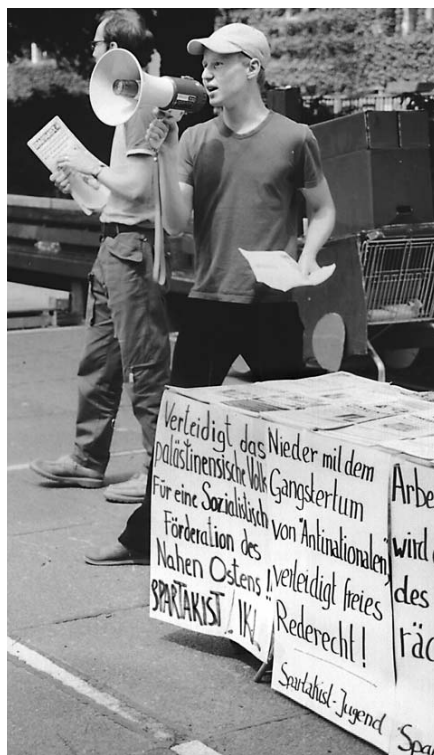 Verteidigt das
palästinensische Volk
Für eine Sozialistisch
Förderation des
Nahen Ostens!
SPARTAKIST / IKL
Nieder mit dem
Gangstertum
von "Antinationalen",
verteidigt freies
Rederecht!
Spartakist-Jugend
Arbe
wird
des
räc
Spa